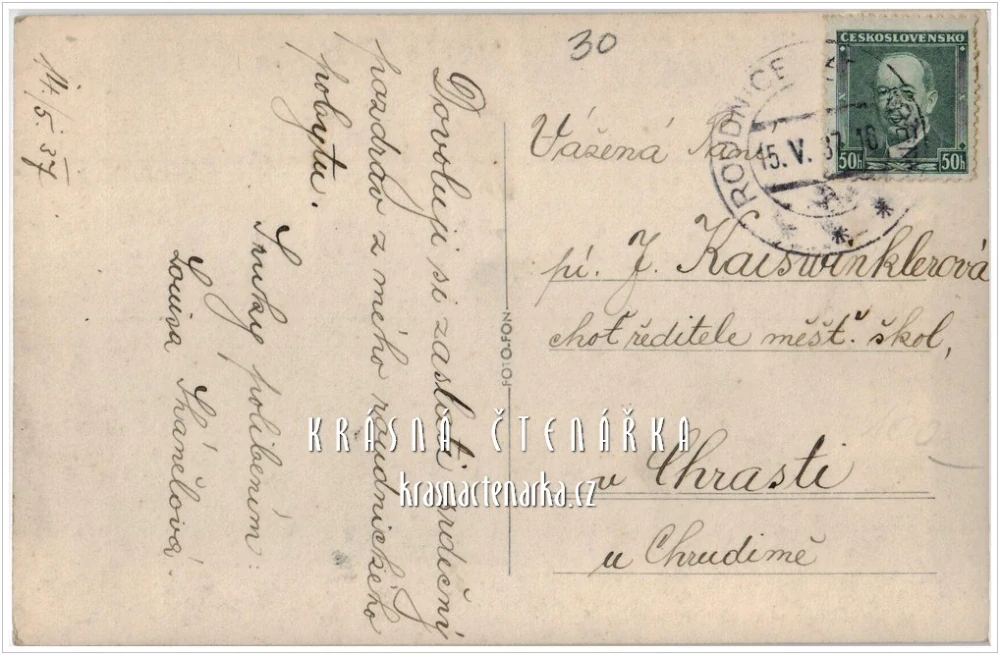 14/5. 37
Dovoluji si zaslati srdečný
pozdrav z mého roudnického
pobytu.
S ruky políbením
Louisa Šháněلová.
30
ČESKOSLOVENSKO
50h 50h
ROUDNICE
15. V. 37 16
Vážená Paní
pí. J. Kaiswinklerová
choť ředitele měšť. škol,
v Chrasti
u Chrudimě
FOTO-FON
KRÁSNÁ ČTENÁŘKA
krasnactenarka.cz